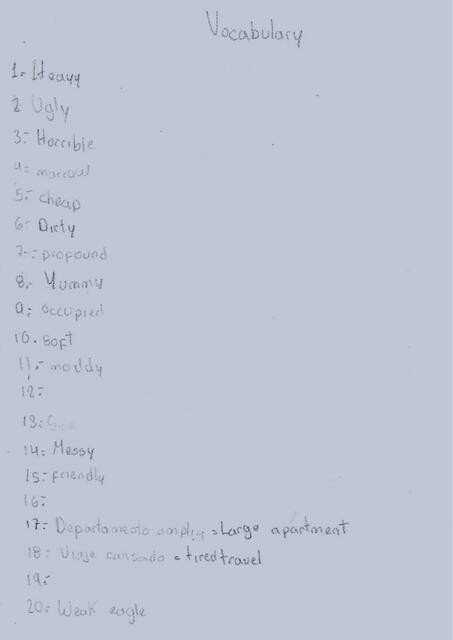 Vocabulary
1.- Heavy
2 Ugly
3.- Horrible
4.- marrow
5.- cheap
6- Dirty
7-: profound
8.- Yummy
9: occupied
10. soft
11.- moddy
12:
13:
14: Messy
15: friendly
16:
17: Departamento amplia = Large apartment
18: Viaje cansado = tired travel
19:
20: Weak eagle